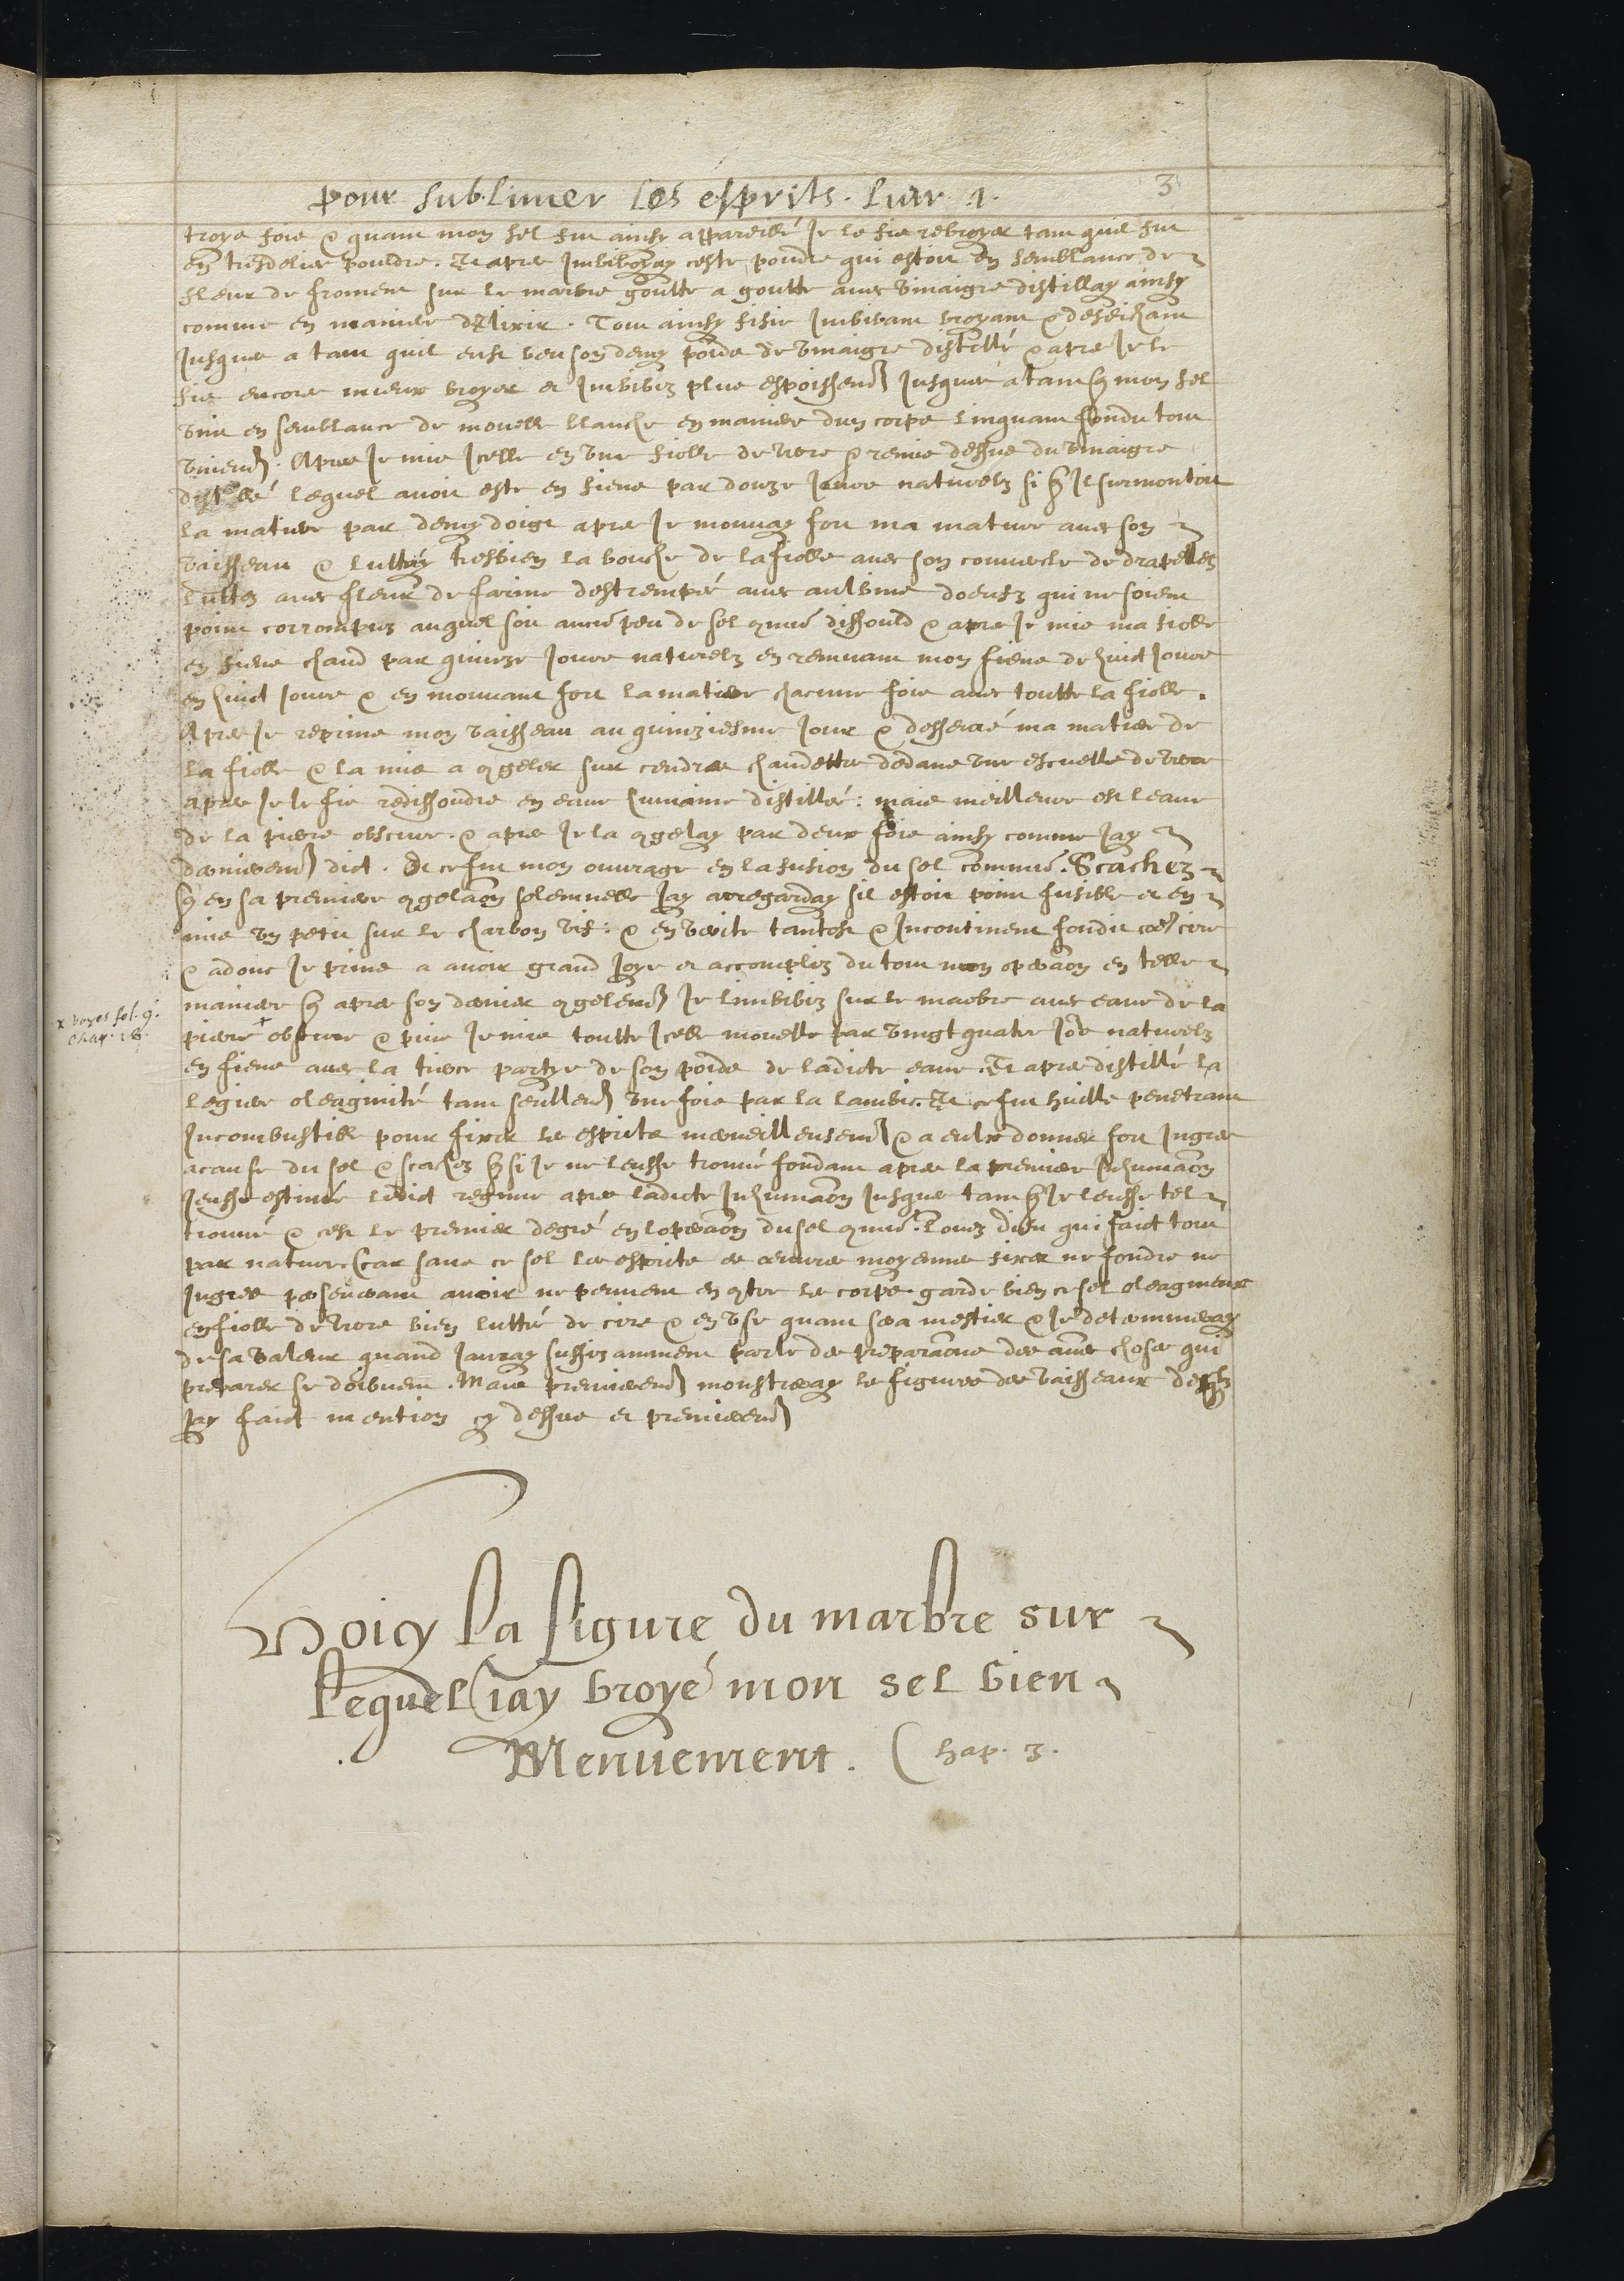 pour sublimer les esprits. Livr. 1. 3
troys fois & quant mon sel fut ainsy appareillé Je le fis rebroyer tant quil fut
en tresdeliee pouldre. Et apres Imbibay ceste poudre qui estoit en semblance de
fleur de froment sur le marbre goutte a goutte avec vinaigre distillay ainsy
comme en maniere dElixir. Tout ainsy fisie Imbibant broyant & deseichant
Jusques a tant quil eust beu son demy poids de vinaigre distillé & apres Je le
fis encores mieux broyer et Imbibez plus espoissem̄ Jusques a tant q̄ mon sel
vint en semblance de mouelle blanche en maniere dun corps linquant fondu tout
vniem̄. Apres Je mis Icelle en vne fiolle de verre & remis dessus du vinaigre
distillé lequel avoit este en fiens par douze Jours naturelz si q̄ Il surmontoit
la matiere par demy doigt apres Je mouvay fort ma matiere avec son
vaisseau & luttay tresbien la bouche de la fiolle avec son couvercle de drapelles
luttez avec fleur de farine destrempé avec aulbine doeufz qui ne soient
point corrompuz auquel soit aucū peu de sel 9mū dissould & apres Je mis ma fiolle
en fiens chaud par quinze Jours naturelz en remuant mon fiens de huict Jours
en huict Jours & en mouvant fort la matiere chacune fois avec toutte la fiolle.
Apres Je reprins mon vaisseau au quinziesme Jour & desserré ma matiere de
la fiolle & la mis a 9geler sur cendres chaudettes dedans vne escuelle de verre
apres Je le fis redissoudre en eaue humaine distillée: mais meilleure est leaue
de la pierre obscure. & apres Je la 9gelay par deux fois ainsy comme Jay
dernierem̄ dict. Et ce fut mon ouvrage en la fusion du sel commū. Scachez
q̄ en sa premiere 9gelaōn solennelle Jay arregarday sil estoit point fusible et en
mis vn petit sur le charbon vif: & en verite tantost & Incontinent fondit cōe cire
& adonc Je prins a avoir grand Joye et accomplis du tout mon operaōn en telle
maniere q̄ apres son dernier 9gelem̄ Je limbibiz sur le marbre avec eaue de la
pierre + obscure & puis Je mis toutte Icelle mouelle par vingt quatre Jors naturelz
x voyes fol. 9.
chap. 18.
en fiens avec la tierce partye de son poids de ladicte eaue. Et apres distillé la
legiere oleaginité tant seullem̄ vne fois par la lambic. Et ce fut huille penetrant
Incombustible pour fixer les esprits merveilleusem̄ & a eulx donner fort Ingrez
a cause du sel & scachez q̄ si Je ne leusse trouvé fondant apres la premiere Inhumaōn
Jeusse estimée ledict regime apres ladicte Inhumaōn Jusques tant q̄ Je leusse tel
trouvé & cest le premier degré en loperaōn du sel 9mū. Louez dieu qui faict tout
par nature. Car sans ce sel les esprits et oeuvres moyennes fixer ne fondre ne
Ingrez perseverant avoir ne peuvent en 9tre les corps. garde bien ce sel oleagineux
en fiolle de verre bien lutté de cire & en vse quant sera mestier & Je determineray
de sa valeur quand Jauray suffizamment parle des preparaōns des aues choses qui
preparer se doibvent. Mais premierem̄ monstreray les figures des vaisseaux desqlz
Jay faict mention cy dessus et premierem̄
Voicy la figure du marbre sur
lequel iay broyé mon sel bien
Menuement. Chap. 3.